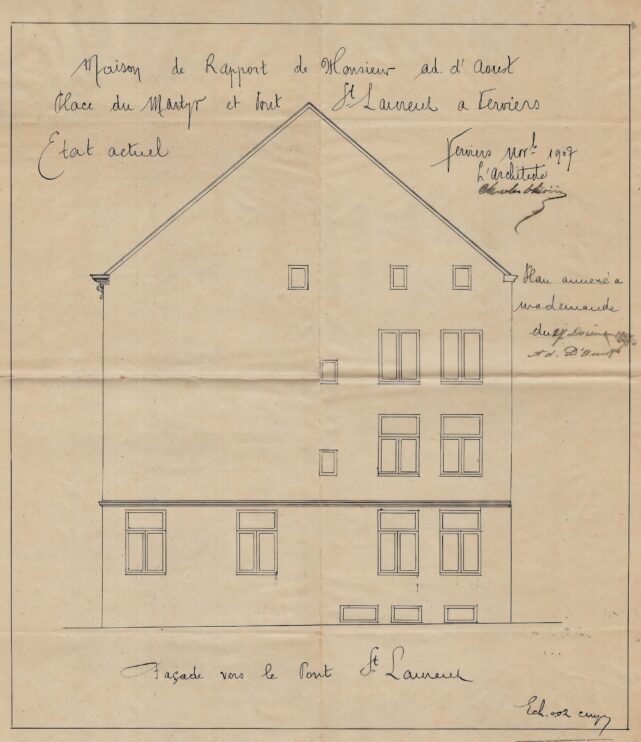 Maison de Rapport de Monsieur ad. d'Aoust
Place du Martyr et Pont St Laurent a Verviers
Etat actuel
Verviers 1907
L'architecte
Charles
Plan annexé a
ma demande
du
Ad. D'Aoust
Façade vers le Pont St Laurent
Ech.